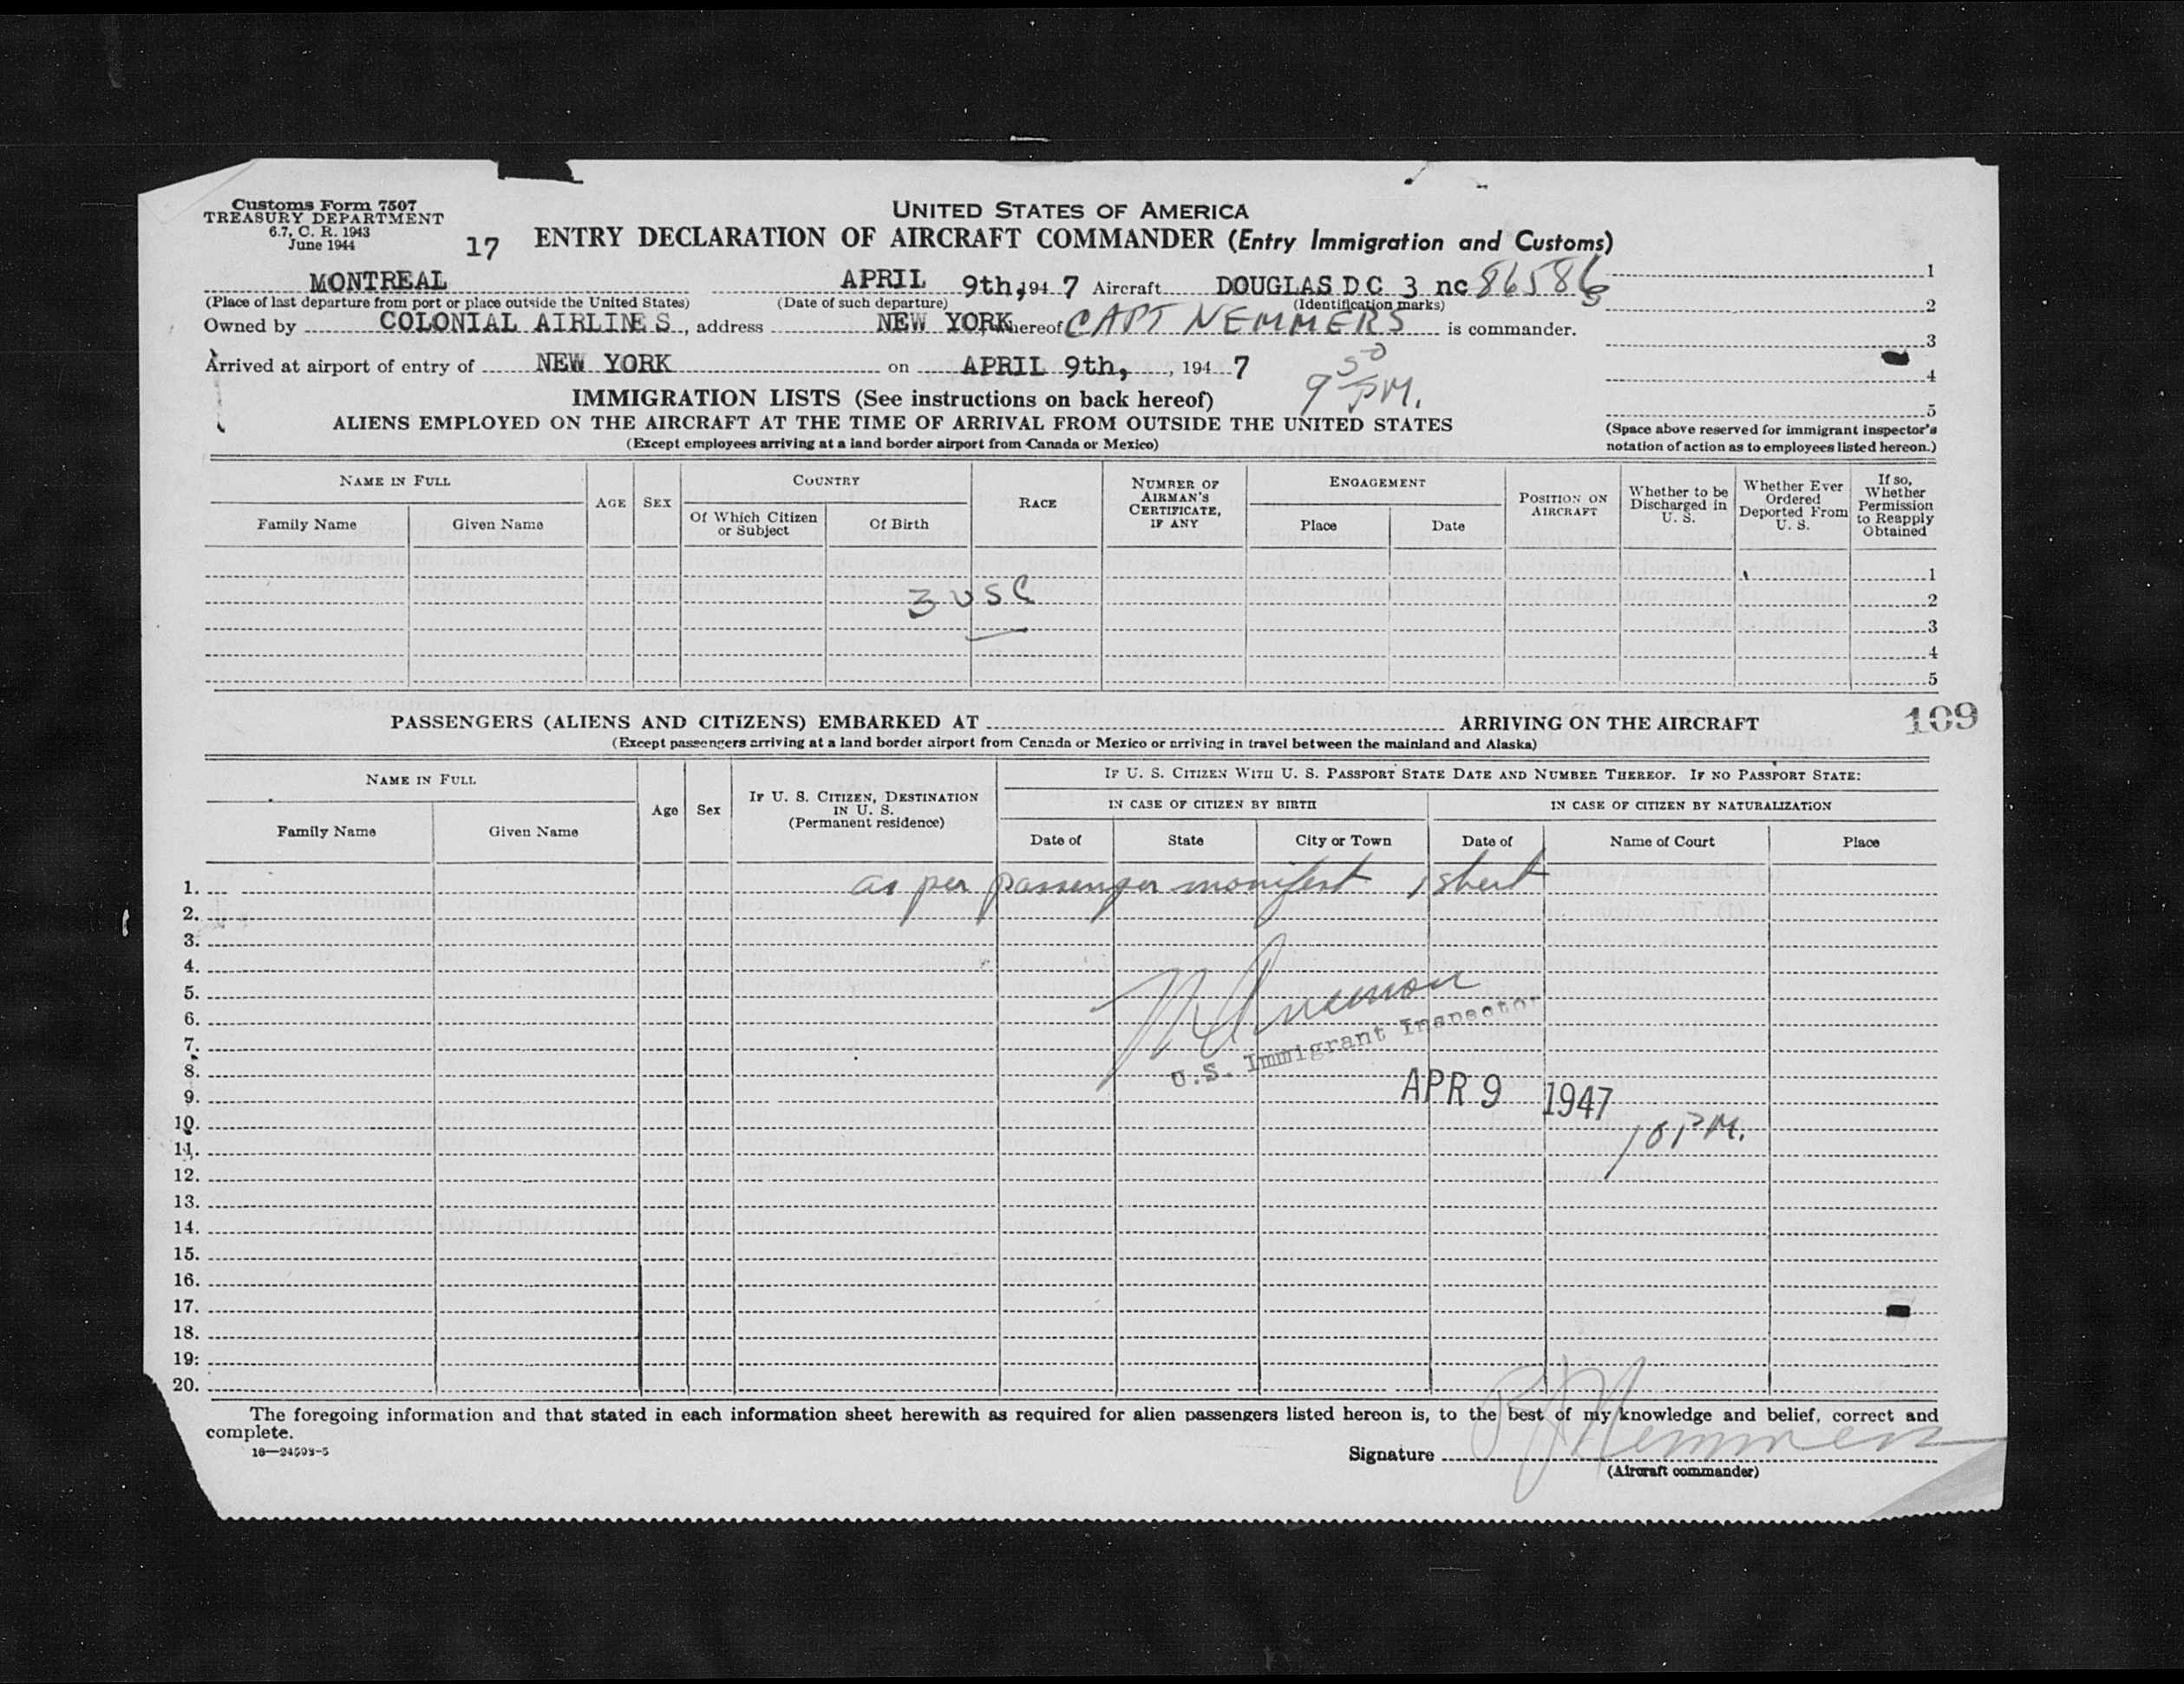 Customs Form 7507
TREASURY DEPARTMENT
6.7, C. R. 1943
June 1944
17
UNITED STATES OF AMERICA
ENTRY DECLARATION OF AIRCRAFT COMMANDER (Entry Immigration and Customs)
MONTREAL APRIL 9th, 194 7 Aircraft DOUGLAS D C 3 nc 86586
(Place of last departure from port or place outside the United States) (Date of such departure) (Identification marks)
Owned by COLONIAL AIRLINES, address NEW YORK, thereof CAPT NEMMERS is commander.
Arrived at airport of entry of NEW YORK on APRIL 9th, , 194 7
9 50 PM.
1
2
3
4
5
(Space above reserved for immigrant inspector's
notation of action as to employees listed hereon.)
IMMIGRATION LISTS (See instructions on back hereof)
ALIENS EMPLOYED ON THE AIRCRAFT AT THE TIME OF ARRIVAL FROM OUTSIDE THE UNITED STATES
(Except employees arriving at a land border airport from Canada or Mexico)
NAME IN FULL
Family Name Given Name
AGE SEX
COUNTRY
Of Which Citizen or Subject Of Birth
RACE
NUMBER OF AIRMAN'S CERTIFICATE, IF ANY
ENGAGEMENT
Place Date
POSITION ON AIRCRAFT
Whether to be Discharged in U. S.
Whether Ever Ordered Deported From U. S.
If so, Whether Permission to Reapply Obtained
1
3 USC 2
3
4
5
PASSENGERS (ALIENS AND CITIZENS) EMBARKED AT ARRIVING ON THE AIRCRAFT
109
(Except passengers arriving at a land border airport from Canada or Mexico or arriving in travel between the mainland and Alaska)
NAME IN FULL
Family Name Given Name
Age Sex
IF U. S. CITIZEN, DESTINATION IN U. S.
(Permanent residence)
IF U. S. CITIZEN WITH U. S. PASSPORT STATE DATE AND NUMBER THEREOF. IF NO PASSPORT STATE:
IN CASE OF CITIZEN BY BIRTH IN CASE OF CITIZEN BY NATURALIZATION
Date of State City or Town Date of Name of Court Place
1. as per passenger manifest 1 sheet
2.
3.
4.
5.
6.
7. U.S. Immigrant Inspector
8.
9. APR 9 1947
10. 10 PM.
11.
12.
13.
14.
15.
16.
17.
18.
19.
20.
The foregoing information and that stated in each information sheet herewith as required for alien passengers listed hereon is, to the best of my knowledge and belief, correct and
complete.
16—24503-5
Signature R J Nemmers
(Aircraft commander)